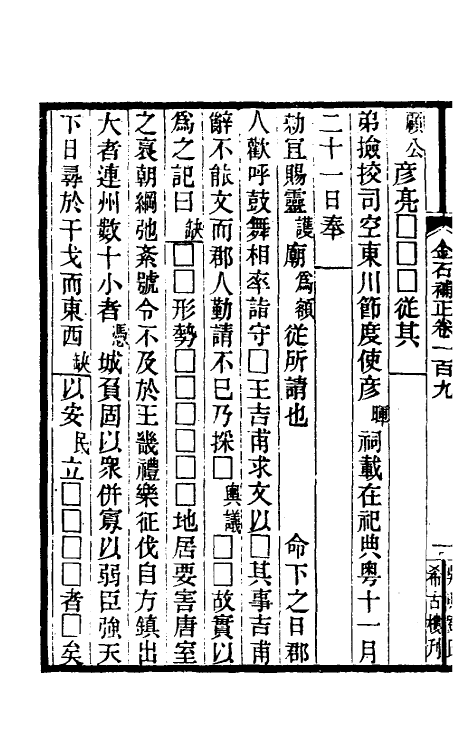 金石補正卷一百九
一
希古樓刊
顧公彥亮□□□從其
弟撿挍司空東川節度使彥暉祠載在祀典粵十一月
二十一日奉
勑宜賜靈護廟為額從所請也　命下之日郡
人歡呼鼓舞相率詣守□王吉甫求文以□其事吉甫
辭不能文而郡人勤請不已乃採□輿議□□故實以
為之記曰缺□□形勢□□□□□□地居要害唐室
之衰朝綱弛紊號令不及於王畿禮樂征伐自方鎮出
大者連州數十小者憑城負固以衆併寡以弱臣強天
下日尋於干戈而東西缺□以安民立□□□□者□矣